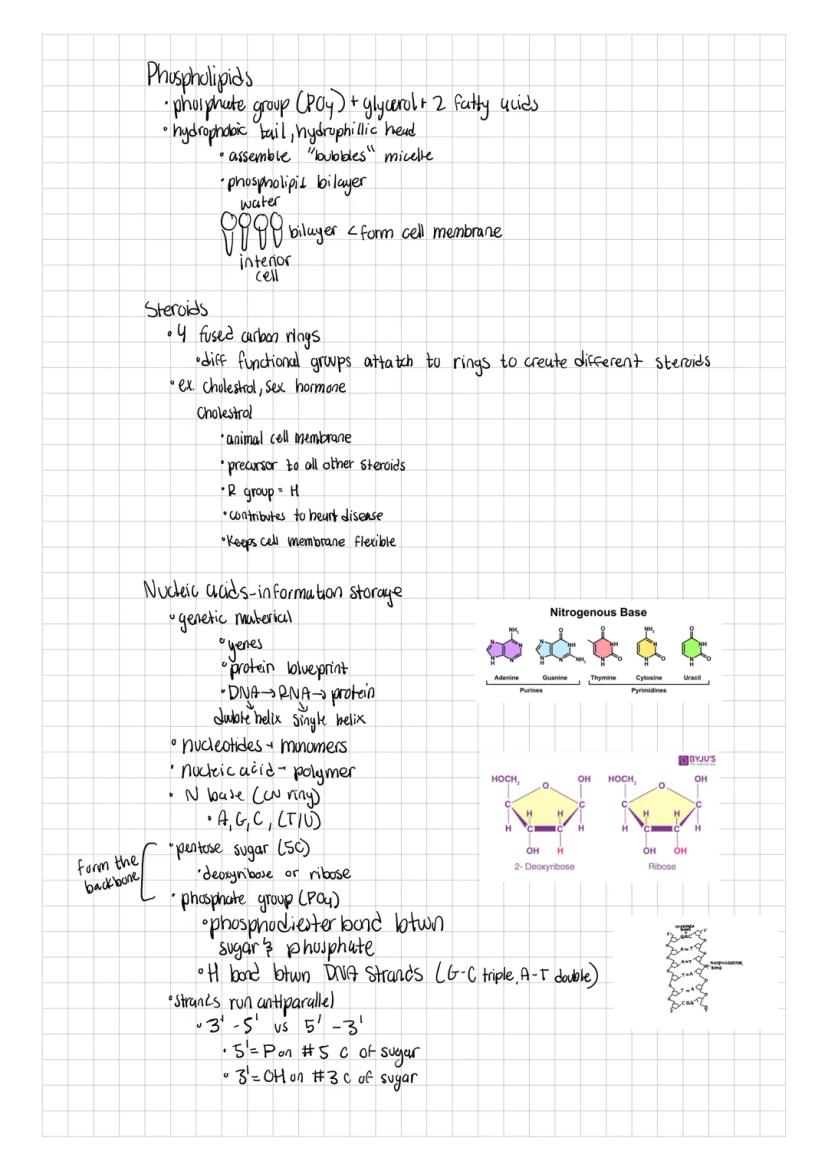 Phospholipids
• phosphate group (PO4) + glycerol + 2 fatty acids
• hydrophobic tail, hydrophillic head
• assemble "bubbles" micelle
• phospholipid bilayer
water
bilayer < form cell membrane
interior
cell
Steroids
• 4 fused carbon rings
• diff functional groups attatch to rings to create different steroids
• ex. cholestrol, sex hormone
Cholestrol
• animal cell membrane
• precursor to all other steroids
• R group = H
• contributes to heart disease
• Keeps cell membrane flexible
Nucleic acids - information storage
• genetic material
• genes
• protein blueprint
• DNA → RNA → protein
double helix single helix
• nucleotides → monomers
• nucleic acid - polymer
• N base (CN ring)
• A, G, C, (T/U)
• pentose sugar (5C)
form the
backbone
• deoxyribose or ribose
• phosphate group (PO4)
• phosphodiester bond btwn
sugar & phosphate
• H bond btwn DNA strands (G-C triple, A-T double)
• strands run antiparallel
• 3' - 5' vs 5' - 3'
• 5' = P on #5 C of sugar
• 3' = OH on #3 C of sugar
Nitrogenous Base
NH2 O O NH2 O
N N N NH NH N NH
N H N N H N NH2 N H O N H O N H O
Adenine Guanine Thymine Cytosine Uracil
Purines Pyrimidines
BYJU'S
HOCH2 O OH HOCH2 O OH
C C C C
H H H H H H H H
C C C C
OH H OH OH
2- Deoxyribose Ribose
5' 3'
G≡C
A=T
A=T
T=A
T=A
C≡G